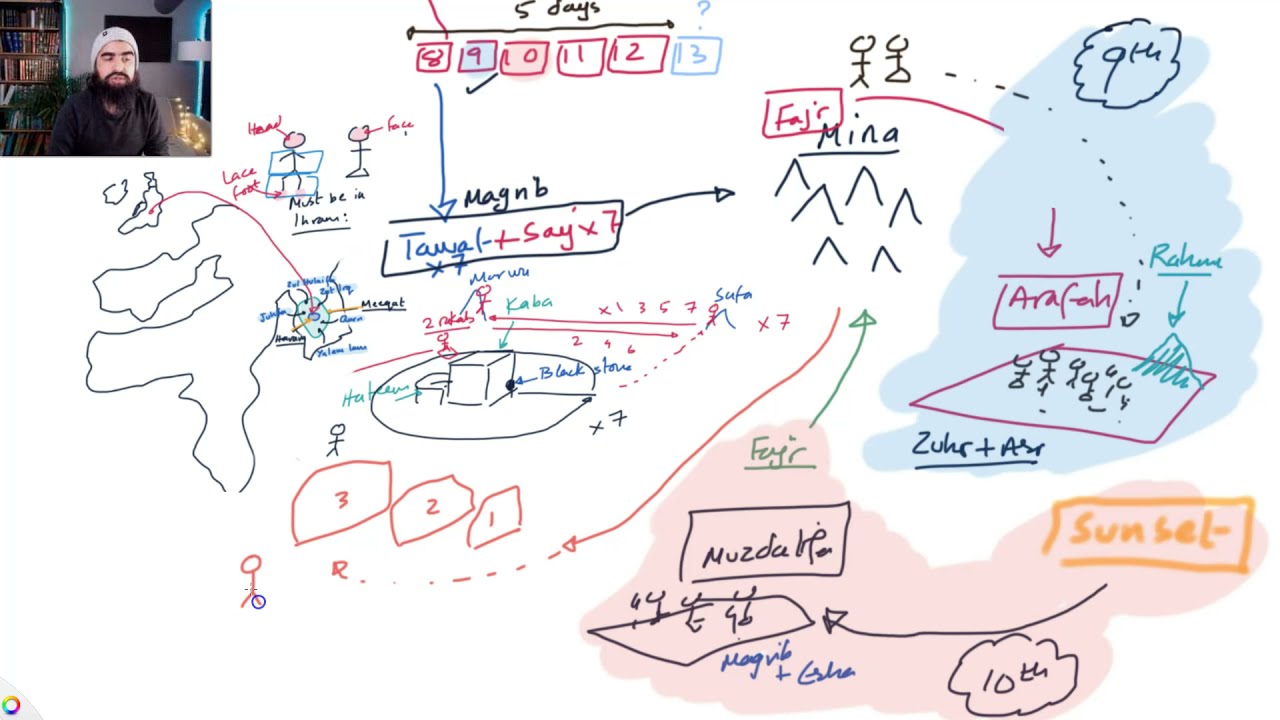 5 days
?
8 9 10 11 12 13
9th
Head
Face
Fajr
Mina
Lace
foot
Must be in
Ihram:
Magrib
Tawaf + Say x 7
x 7
Rahma
Arafah
Meeqat
Yalam lam
Marwa
Kaba
Safa
x 1 3 5 7
x 7
2 4 6
2 rakah
Black stone
Hateem
x 7
Zuhr + Asr
Fajr
3 2 1
Sunset
Muzdalifa
Magrib
+ Esha
10th